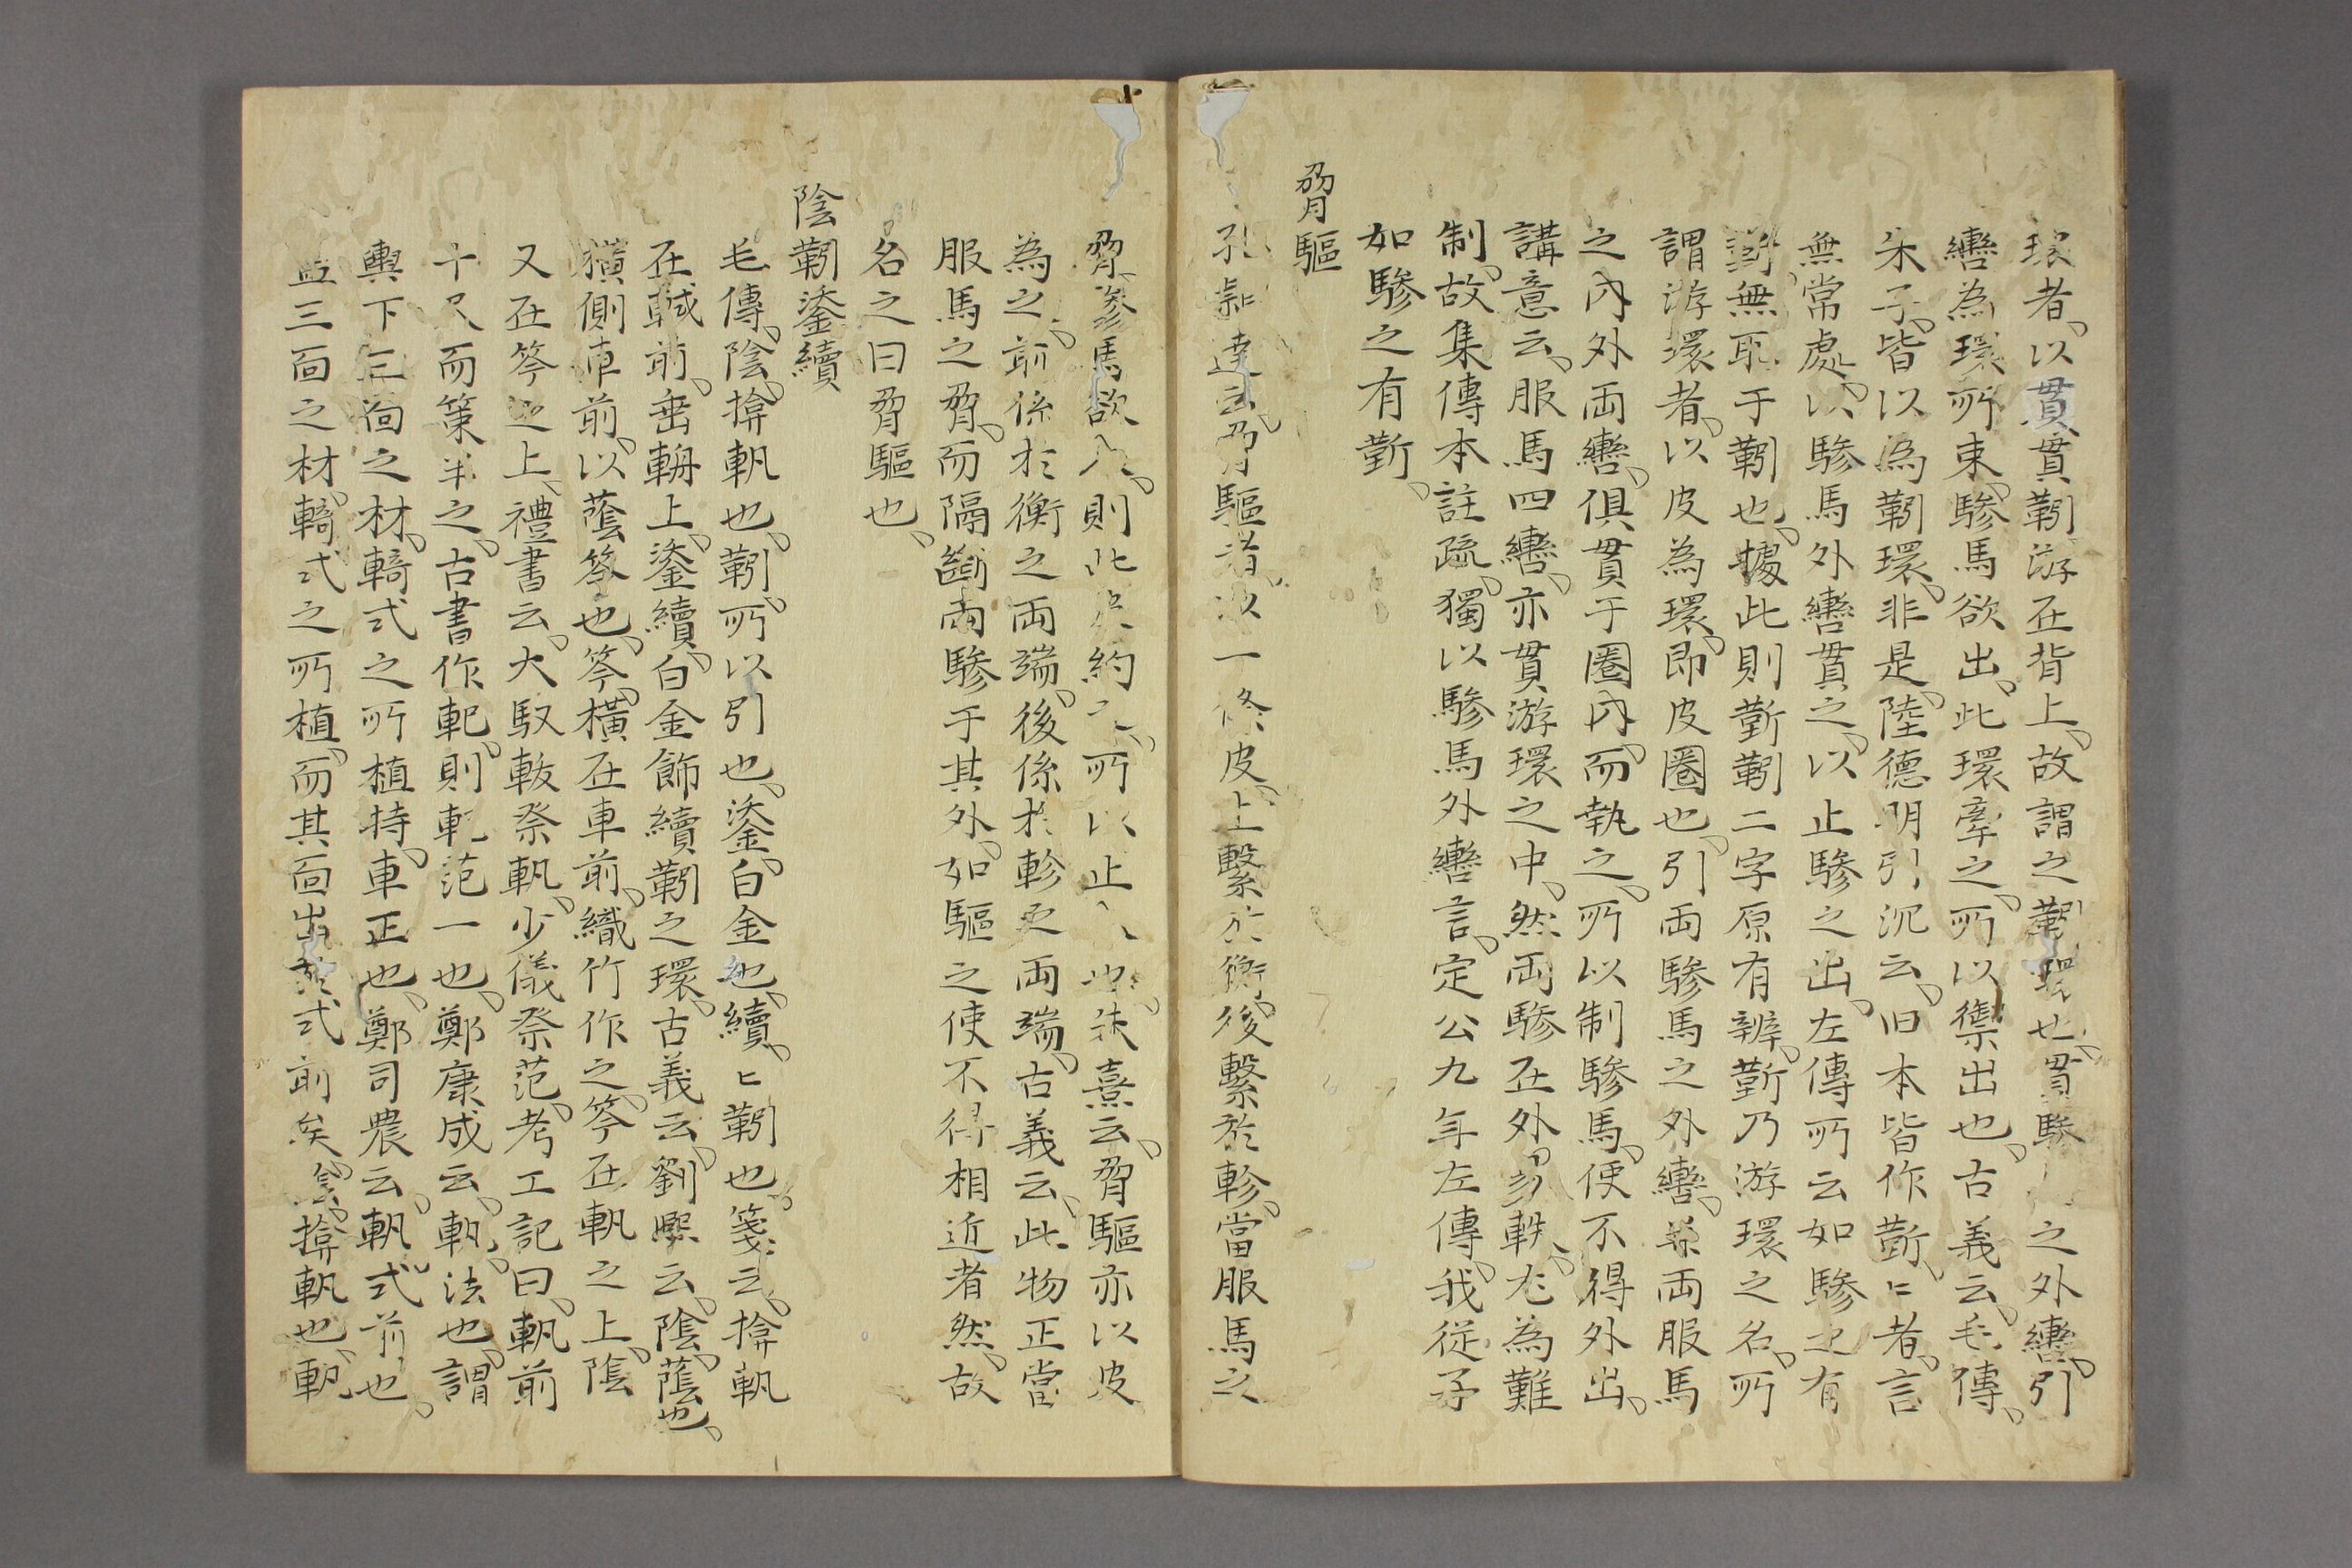 環者、以貫貫靷游在背上、故謂之靷環也、貫驂之外轡、引
轡為環所束、驂馬欲出、此環牽之、所以禦出也、古義云、毛傳、
朱子、皆以為靷環、非是、陸德明引沉云、旧本皆作靳、匕者、言
無常處、以驂馬外轡貫之、以止驂之出、左傳所云如驂之有
靳、無取于靷也、據此則靳靷二字原有辨、靳乃游環之名、所
謂游環者、以皮為環、即皮圈也、引両驂馬之外轡、并両服馬
之內外両轡、俱貫于圈內、而執之、所以制驂馬、使不得外出、
講意云、服馬四轡、亦貫游環之中、然両驂在外、軼、尤為難
制、故集傳本註疏、獨以驂馬外轡言、定公九年左傳、我從子
如驂之有靳、
脅驅
孔穎達云、脅驅者、以一條皮、上繫於衡、後繫於軫、當服馬之
脅、驂馬欲入、則此皮約之、所以止入也、朱熹云、脅驅亦以皮
為之、前係於衡之両端、後係於軫之両端、古義云、此物正當
服馬之脅、而隔斷両驂于其外、如驅之使不得相近者然、故
名之曰脅驅也、
陰靷鋈續
毛傳、陰、揜軓也、靷、所以引也、鋈、白金也、續、匕靷也、箋云、揜軓
在軾前、垂輈上、鋈續、白金飾續靷之環、古義云、劉熙云、陰、蔭也、
橫側車前、以蔭笭也、笭、橫在車前、織竹作之、笭在軓之上、陰
又在笭之上、禮書云、大馭軷祭軓、少儀祭范、考工記曰、軓前
十尺而策半之、古書作軋、則軓范一也、鄭康成云、軓、法也、謂
輿下三面之材、輢式之所植持、車正也、鄭司農云、軓、式前也、
盖三面之材、輢式之所植、而其面出於式前矣、陰、揜軓也、軓